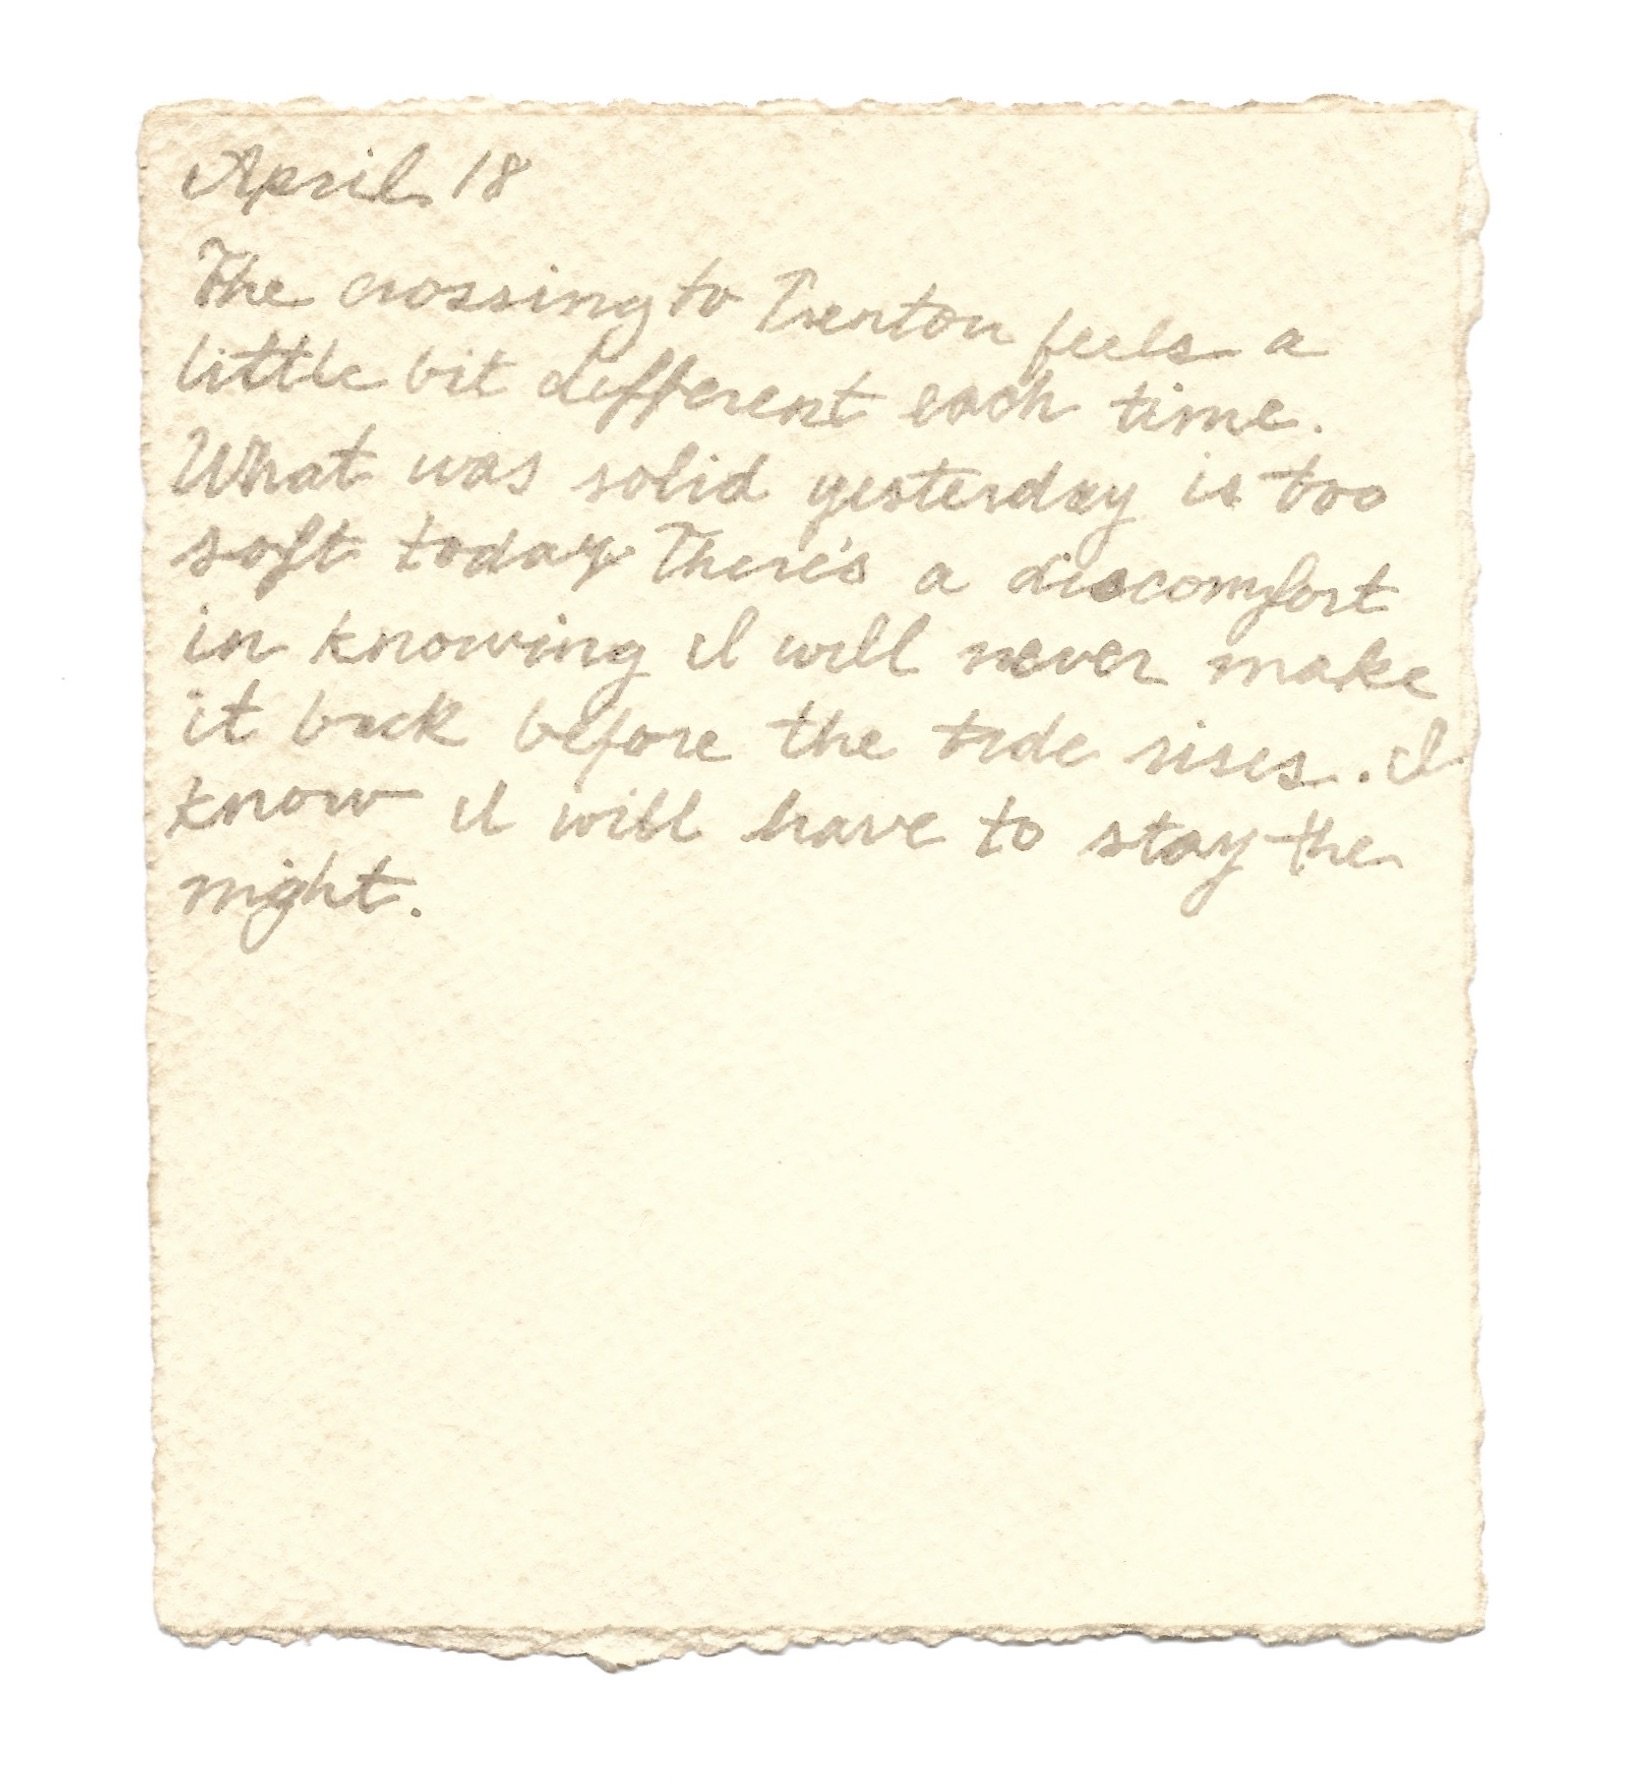 April 18
The crossing to Trenton feels a
little bit different each time.
What was solid yesterday is too
soft today There's a discomfort
in knowing I will never make
it back before the tide rises. I
know I will have to stay the
night.